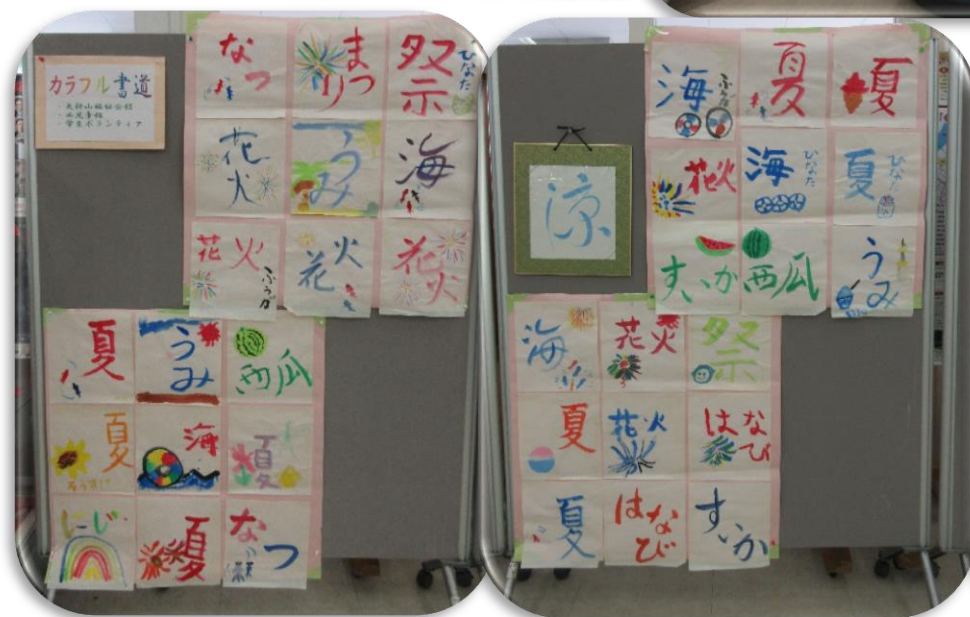 カラフル書道
・学生ボランティア
なつ
まつり
祭
ひなた
花火
うみ
海
花火
ふうか
花火
花火
夏
うみ
西瓜
夏
海
夏
にじ
夏
なつ
涼
海
夏
夏
花火
海
ひなた
夏
ひなた
すいか
西瓜
うみ
海
花火
祭
夏
花火
はなび
夏
はなび
すいか